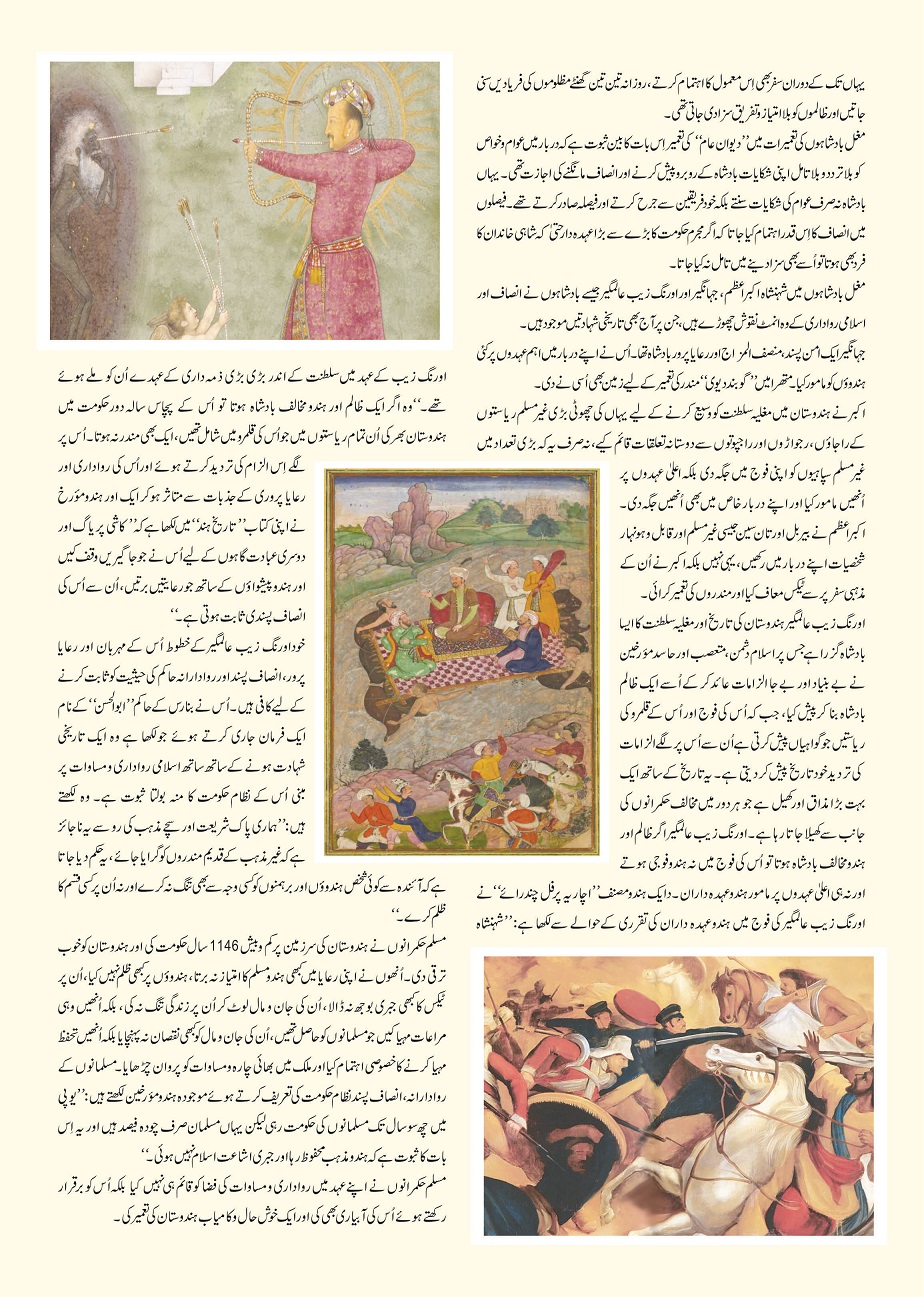 یہاں تک کے دوران سفر بھی اِس معمول کا اہتمام کرتے، روزانہ تین تین گھنٹے مظلوموں کی فریادیں سنی
جاتیں اور ظالموں کو بلا امتیاز و تفریق سزا دی جاتی تھی۔
مغل بادشاہوں کی تعمیرات میں ’’دیوان عام‘‘ کی تعمیر اِس بات کا بین ثبوت ہے کہ دربار میں عوام و خواص
کو بلا تردد و بلا تامل اپنی شکایات بادشاہ کے روبرو پیش کرنے اور انصاف مانگنے کی اجازت تھی۔ یہاں
بادشاہ نہ صرف عوام کی شکایات سنتے بلکہ خود فریقین سے جرح کرتے اور فیصلہ صادر کرتے تھے۔ فیصلوں
میں انصاف کا اِس قدر اہتمام کیا جاتا کہ اگر مجرم حکومت کا بڑے سے بڑا عہدہ دار حتیٰ کہ شاہی خاندان کا
فرد بھی ہوتا تو اُسے بھی سزا دینے میں تامل نہ کیا جاتا۔
مغل بادشاہوں میں شہنشاہ اکبر اعظم، جہانگیر اور اورنگ زیب عالمگیر جیسے بادشاہوں نے انصاف اور
اسلامی رواداری کے وہ انمٹ نقوش چھوڑے ہیں، جن پر آج بھی تاریخی شہادتیں موجود ہیں۔
جہانگیر ایک امن پسند، منصف المزاج اور رعایا پرور بادشاہ تھا۔ اُس نے اپنے دربار میں اہم عہدوں پر کئی
ہندوؤں کو مامور کیا۔ متھرا میں ’’گوبند دیوی‘‘ مندر کی تعمیر کے لیے زمین بھی اُسی نے دی۔
اکبر نے ہندوستان میں مغلیہ سلطنت کو وسیع کرنے کے لیے یہاں کی چھوٹی بڑی غیر مسلم ریاستوں
کے راجاؤں، رجواڑوں اور راجپوتوں سے دوستانہ تعلقات قائم کیے، نہ صرف یہ کہ بڑی تعداد میں
غیر مسلم سپاہیوں کو اپنی فوج میں جگہ دی بلکہ اعلیٰ عہدوں پر
اُنھیں مامور کیا اور اپنے دربار خاص میں بھی اُنھیں جگہ دی۔
اکبر اعظم نے بیربل اور تان سین جیسی غیر مسلم اور قابل و ہونہار
شخصیات اپنے دربار میں رکھیں، یہی نہیں بلکہ اکبر نے اُن کے
مذہبی سفر پر سے ٹیکس معاف کیا اور مندروں کی تعمیر کرائی۔
اورنگ زیب عالمگیر ہندوستان کی تاریخ اور مغلیہ سلطنت کا ایسا
بادشاہ گزرا ہے جس پر اسلام دشمن، متعصب اور حاسد مؤرخین
نے بے بنیاد اور بے جا الزامات عائد کر کے اُسے ایک ظالم
بادشاہ بنا کر پیش کیا، جب کہ اُس کی فوج اور اُس کے قلمرو کی
ریاستیں جو گواہیاں پیش کرتی ہے اُن سے اُس پر لگے الزامات
کی تردید خود تاریخ پیش کر دیتی ہے۔ یہ تاریخ کے ساتھ ایک
بہت بڑا مذاق اور کھیل ہے جو ہر دور میں مخالف حکمرانوں کی
جانب سے کھیلا جاتا رہا ہے۔ اورنگ زیب عالمگیر اگر ظالم اور
ہندو مخالف بادشاہ ہوتا تو اُس کی فوج میں نہ ہندو فوجی ہوتے
اور نہ ہی اعلیٰ عہدوں پر مامور ہندو عہدہ داران۔ دا یک ہندو مصنف ’’اچاریہ پرفل چندرائے‘‘ نے
اورنگ زیب عالمگیر کی فوج میں ہندو عہدہ داران کی تقرری کے حوالے سے لکھا ہے: ’’شہنشاہ
اورنگ زیب کے عہد میں سلطنت کے اندر بڑی بڑی ذمہ داری کے عہدے اُن کو ملے ہوئے
تھے۔‘‘ وہ اگر ایک ظالم اور ہندو مخالف بادشاہ ہوتا تو اُس کے پچاس سالہ دور حکومت میں
ہندوستان بھر کی اُن تمام ریاستوں میں جو اُس کی قلمرو میں شامل تھیں، ایک بھی مندر نہ ہوتا۔ اُس پر
لگے اِس الزام کی تردید کرتے ہوئے اور اُس کی رواداری اور
رعایا پروری کے جذبات سے متاثر ہو کر ایک اور ہندو مؤرخ
نے اپنی کتاب ’’تاریخ ہند‘‘ میں لکھا ہے کہ ’’کاشی پریاگ اور
دوسری عبادت گاہوں کے لیے اُس نے جو جاگیریں وقف کیں
اور ہندو پیشواؤں کے ساتھ جو رعایتیں برتیں، اُن سے اُس کی
انصاف پسندی ثابت ہوتی ہے۔‘‘
خود اورنگ زیب عالمگیر کے خطوط اُس کے مہربان اور رعایا
پرور، انصاف پسند اور روادارانہ حاکم کی حیثیت کو ثابت کرنے
کے لیے کافی ہیں۔ اُس نے بنارس کے حاکم ’’ابوالحسن‘‘ کے نام
ایک فرمان جاری کرتے ہوئے جو لکھا ہے وہ ایک تاریخی
شہادت ہونے کے ساتھ ساتھ اسلامی رواداری و مساوات پر
مبنی اُس کے نظام حکومت کا منہ بولتا ثبوت ہے۔ وہ لکھتے
ہیں: ’’ہماری پاک شریعت اور سچے مذہب کی رو سے یہ ناجائز
ہے کہ غیر مذہب کے قدیم مندروں کو گرایا جائے، یہ حکم دیا جاتا
ہے کہ آئندہ سے کوئی شخص ہندوؤں اور برہمنوں کو کسی وجہ سے بھی تنگ نہ کرے اور نہ اُن پر کسی قسم کا
ظلم کرے۔‘‘
مسلم حکمرانوں نے ہندوستان کی سرزمین پر کم و بیش 1146 سال حکومت کی اور ہندوستان کو خوب
ترقی دی۔ اُنھوں نے اپنی رعایا میں کبھی ہندو مسلم کا امتیاز نہ برتا، ہندوؤں پر کبھی ظلم نہیں کیا، اُن پر
ٹیکس کا کبھی جبری بوجھ نہ ڈالا، اُن کی جان و مال لوٹ کر اُن پر زندگی تنگ نہ کی، بلکہ اُنھیں وہی
مراعات مہیا کیں جو مسلمانوں کو حاصل تھیں، اُن کی جان و مال کو کبھی نقصان نہ پہنچایا بلکہ اُنھیں تحفظ
مہیا کرنے کا خصوصی اہتمام کیا اور ملک میں بھائی چارہ و مساوات کو پروان چڑھایا۔ مسلمانوں کے
روادارانہ، انصاف پسند نظام حکومت کی تعریف کرتے ہوئے موجودہ ہندو مؤرخین لکھتے ہیں: ’’یو پی
میں چھ سو سال تک مسلمانوں کی حکومت رہی لیکن یہاں مسلمان صرف چودہ فیصد ہیں اور یہ اِس
بات کا ثبوت ہے کہ ہندو مذہب محفوظ رہا اور جبری اشاعت اسلام نہیں ہوئی۔‘‘
مسلم حکمرانوں نے اپنے عہد میں رواداری و مساوات کی فضا کو قائم ہی نہیں کیا بلکہ اُس کو برقرار
رکھتے ہوئے اُس کی آبیاری بھی کی اور ایک خوش حال و کامیاب ہندوستان کی تعمیر کی۔